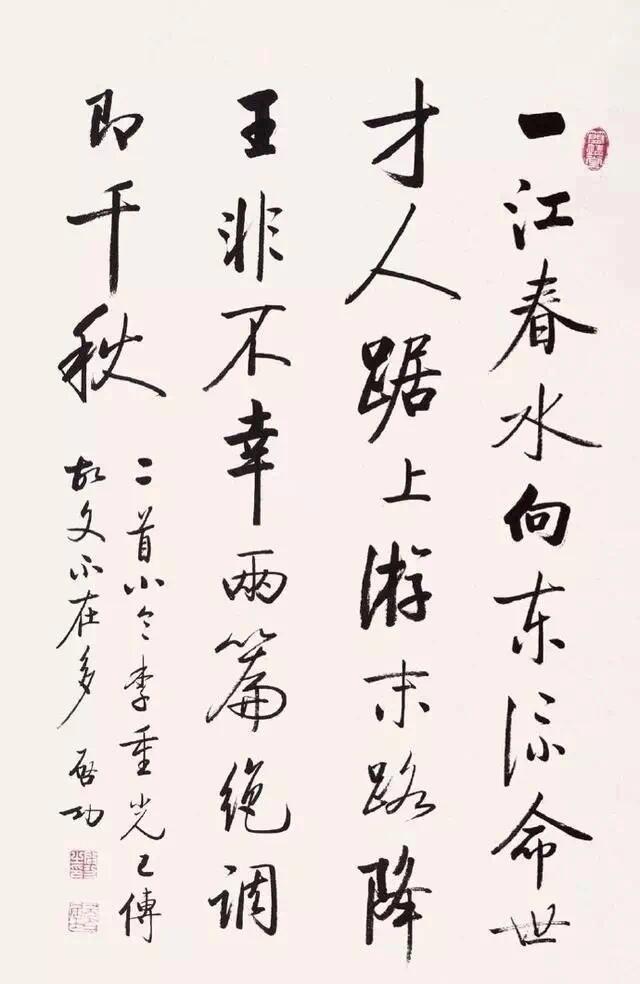 一江春水向东流命世
才人踞上游末路降
王非不幸两篇绝调
即千秋
二首小令李重光已传
故文不在多 启功